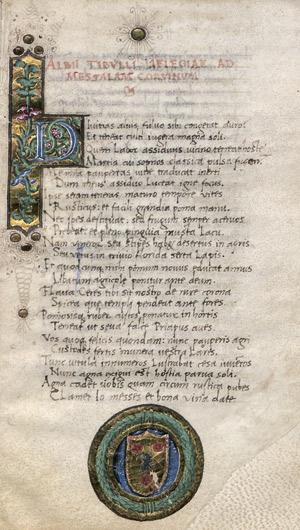 ALBII TIBULLI AELEGIAE AD
MESSALAM CORVINUM
Divitias alius fulvo sibi congerat auro:
Et teneat culti iugera magna soli.
Quem Labor assiduus vicino terreat hoste
Martia cui somnos classica pulsa fugent.
Me mea paupertas vite traducat inerti
Dum meus assiduo luceat igne focus.
Ipse seram teneras maturo tempore vites
Rusticus: et facili grandia poma manu.
Nec spes destituat: sed frugum semper acervos
Prebeat: et pleno pinguia musta Lacu.
Nam veneror seu stipes habet desertus in agris
Seu vetus in trivio florida serta Lapis.
Et quodcunque mihi pomum novus educat annus
Libatum agricole ponitur ante deum.
Flava Ceres tibi sit nostro de rure corona
Spicea que templi pendeat ante fores.
Pomosisque ruber custos ponatur in hortis
Terreat ut seva falce Priapus aves.
Vos quoque felicis quondam: nunc pauperis agri
Custodes fertis munera vestra Lares.
Tunc vitula innumeros Lustrabat cesa iuvencos
Nunc agna exigui est hostia parva soli.
Agna cadet vobis quam circum rustica pubes
Clamet Io messes et bona vina date